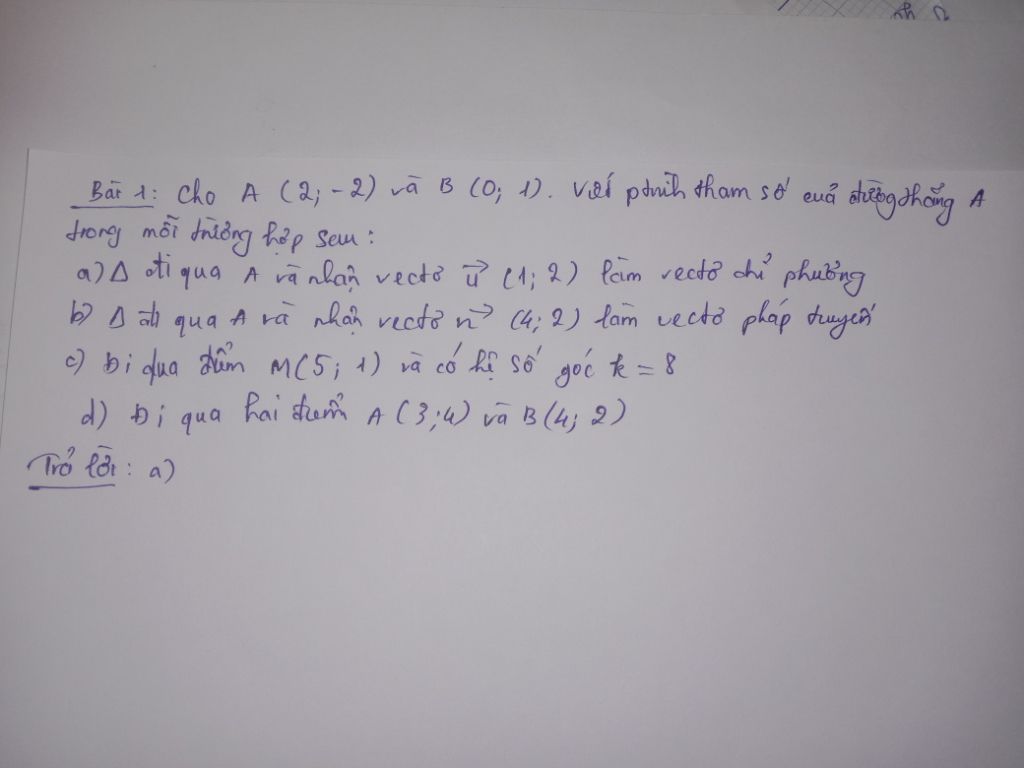 Bài 1: Cho A (2; -2) và B (0; 1). Viết ptrình tham số của đường thẳng Δ
trong mỗi trường hợp sau:
a) Δ đi qua A và nhận vectơ u→ (1; 2) làm vectơ chỉ phương
b) Δ đi qua A và nhận vectơ n→ (4; 2) làm vectơ pháp tuyến
c) Đi qua điểm M(5; 1) và có hệ số góc k = 8
d) Đi qua hai điểm A (3;4) và B(4; 2)
Trả lời: a)